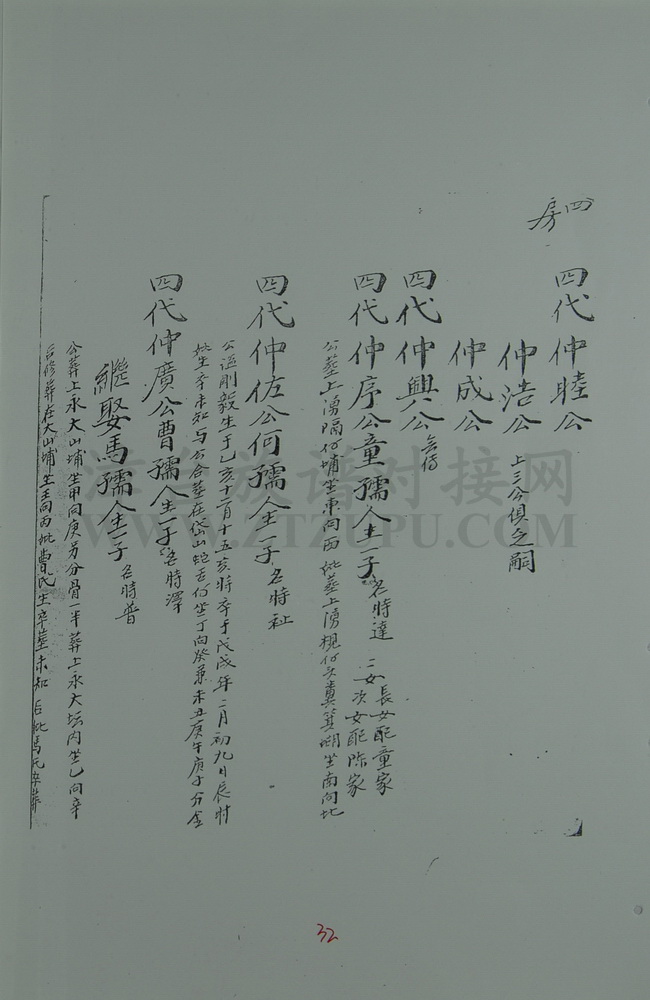 四房
四代仲睦公
仲浩公 上三公俱乏嗣
仲成公
四代仲興公 無傳
四代仲序公童孺人生一子 名時達 二女 長女配童家 次女配陈家
公葬上湧隔何埔坐東向西 妣葬上湧楓何頭糞箕湖坐南向北
四代仲佐公何孺人生一子 名時祉
公諡剛毅生于乙亥十二月十五亥時卒于戊戌年二月初九日辰時
妣生卒未知与公合葬在岱山蛇舌何坐丁向癸兼未丑庚午庚子分金
四代仲廣公曹孺人生一子 名時澤
繼娶馬孺人生一子 名時普
公葬上永大山埔坐甲向庚另分骨一半葬上永大坛内坐乙向辛
后修葬在大山埔坐壬向丙妣曹氏生卒葬未知 后妣馬氏卒葬
32
江 族譜对接网
WWW.ZTZUPU.COM